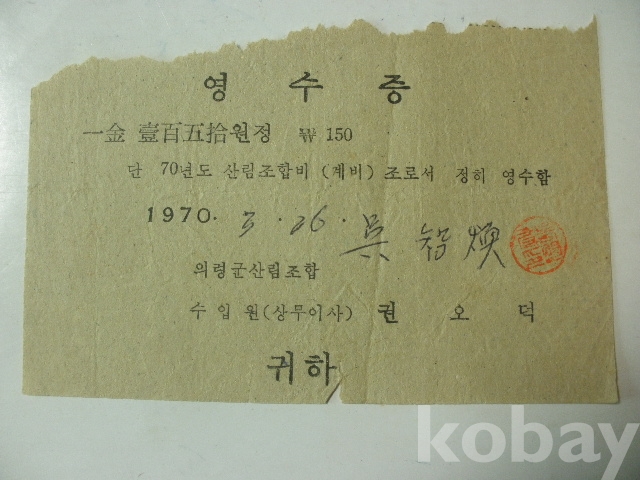 영 수 증
一金 壹百五拾원정 ₩ 150
단 70년도 산림조합비 (계비) 조로서 정히 영수함
1970. 3 . 26 . 吳 智 煥
의령군산림조합
수 입 원 (상무이사) 권 오 덕
귀하
kobay